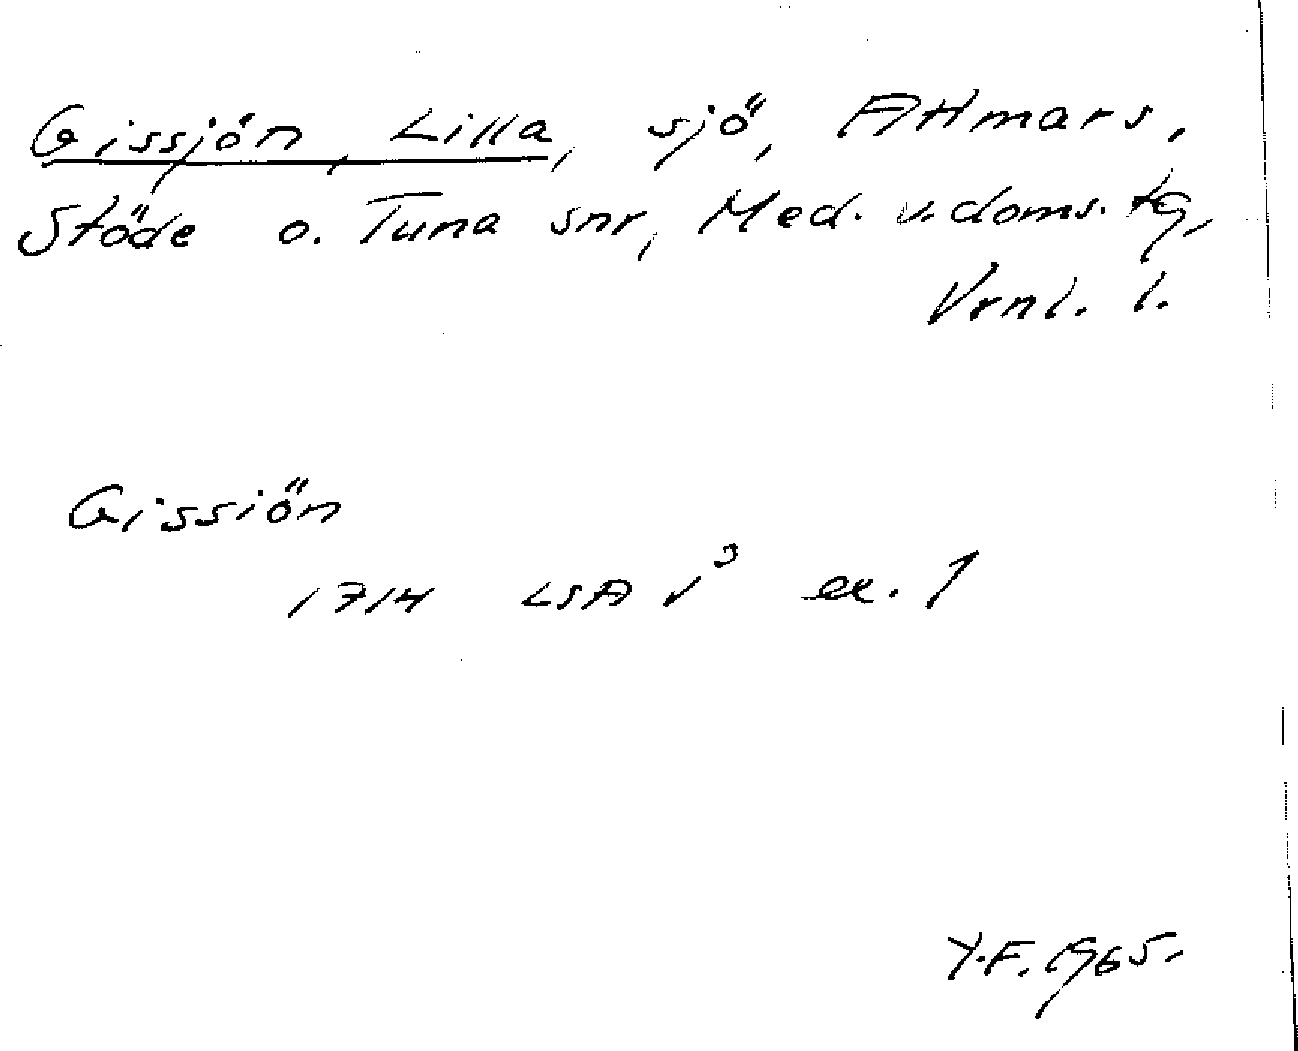 Gissjön, Lilla, sjö, Attmars,
Stöde o. Tuna snr, Med. v. doms. tg,
Vrnl. l.
Gissiön
1714 LSA v³ ex. 1
Y.F. 1965.